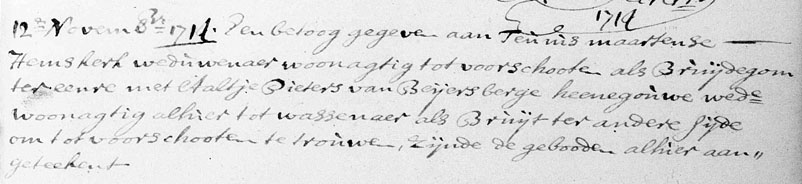 1714
12.de Novemb:r 1714. Een betoog gegeven aan Teunis maartense
Hemskerk weduwenaer woonagtig tot voorschooten als Bruijdegom
ter eenre met Aaltje Pieters van Beijersberge heenegouwe wede
woonagtig alhier tot wassenaer als Bruijt ter andere sijde
om tot voorschooten te trouwen, Zijnde de gebooden alhier aan„
geteekent